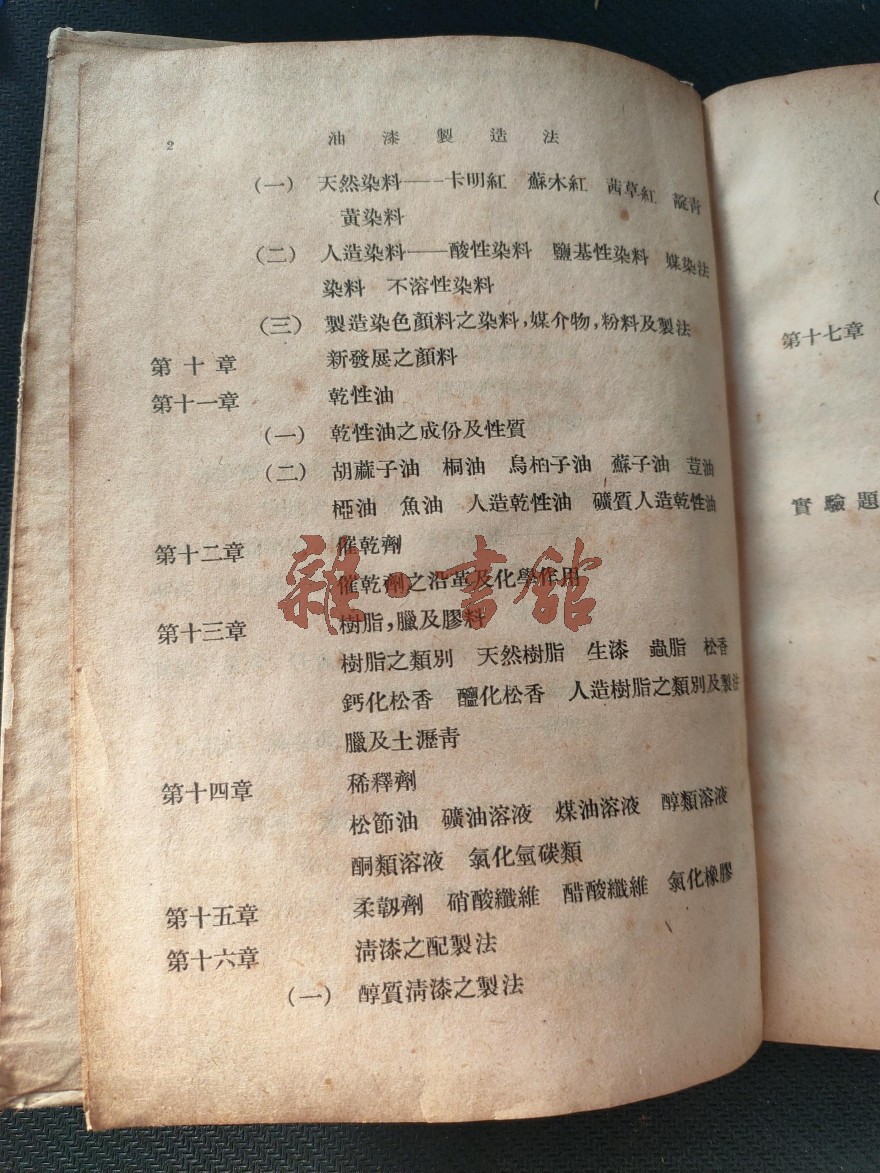 2 油漆製造法
(一) 天然染料——卡明紅 蘇木紅 茜草紅 靛青
黃染料
(二) 人造染料——酸性染料 鹽基性染料 媒染法
染料 不溶性染料
(三) 製造染色顏料之染料,媒介物,粉料及製法
第十章 新發展之顏料
第十一章 乾性油
(一) 乾性油之成份及性質
(二) 胡蔴子油 桐油 烏桕子油 蘇子油 荳油
椏油 魚油 人造乾性油 礦質人造乾性油
第十二章 催乾劑
催乾劑之沿革及化學作用
第十三章 樹脂,臘及膠料
樹脂之類別 天然樹脂 生漆 蟲脂 松香
鈣化松香 醺化松香 人造樹脂之類別及製法
臘及土瀝青
第十四章 稀釋劑
松節油 礦油溶液 煤油溶液 醇類溶液
酮類溶液 氯化氫碳類
第十五章 柔韌劑 硝酸纖維 醋酸纖維 氯化橡膠
第十六章 淸漆之配製法
(一) 醇質淸漆之製法
第十七章
實驗題
雜·書館